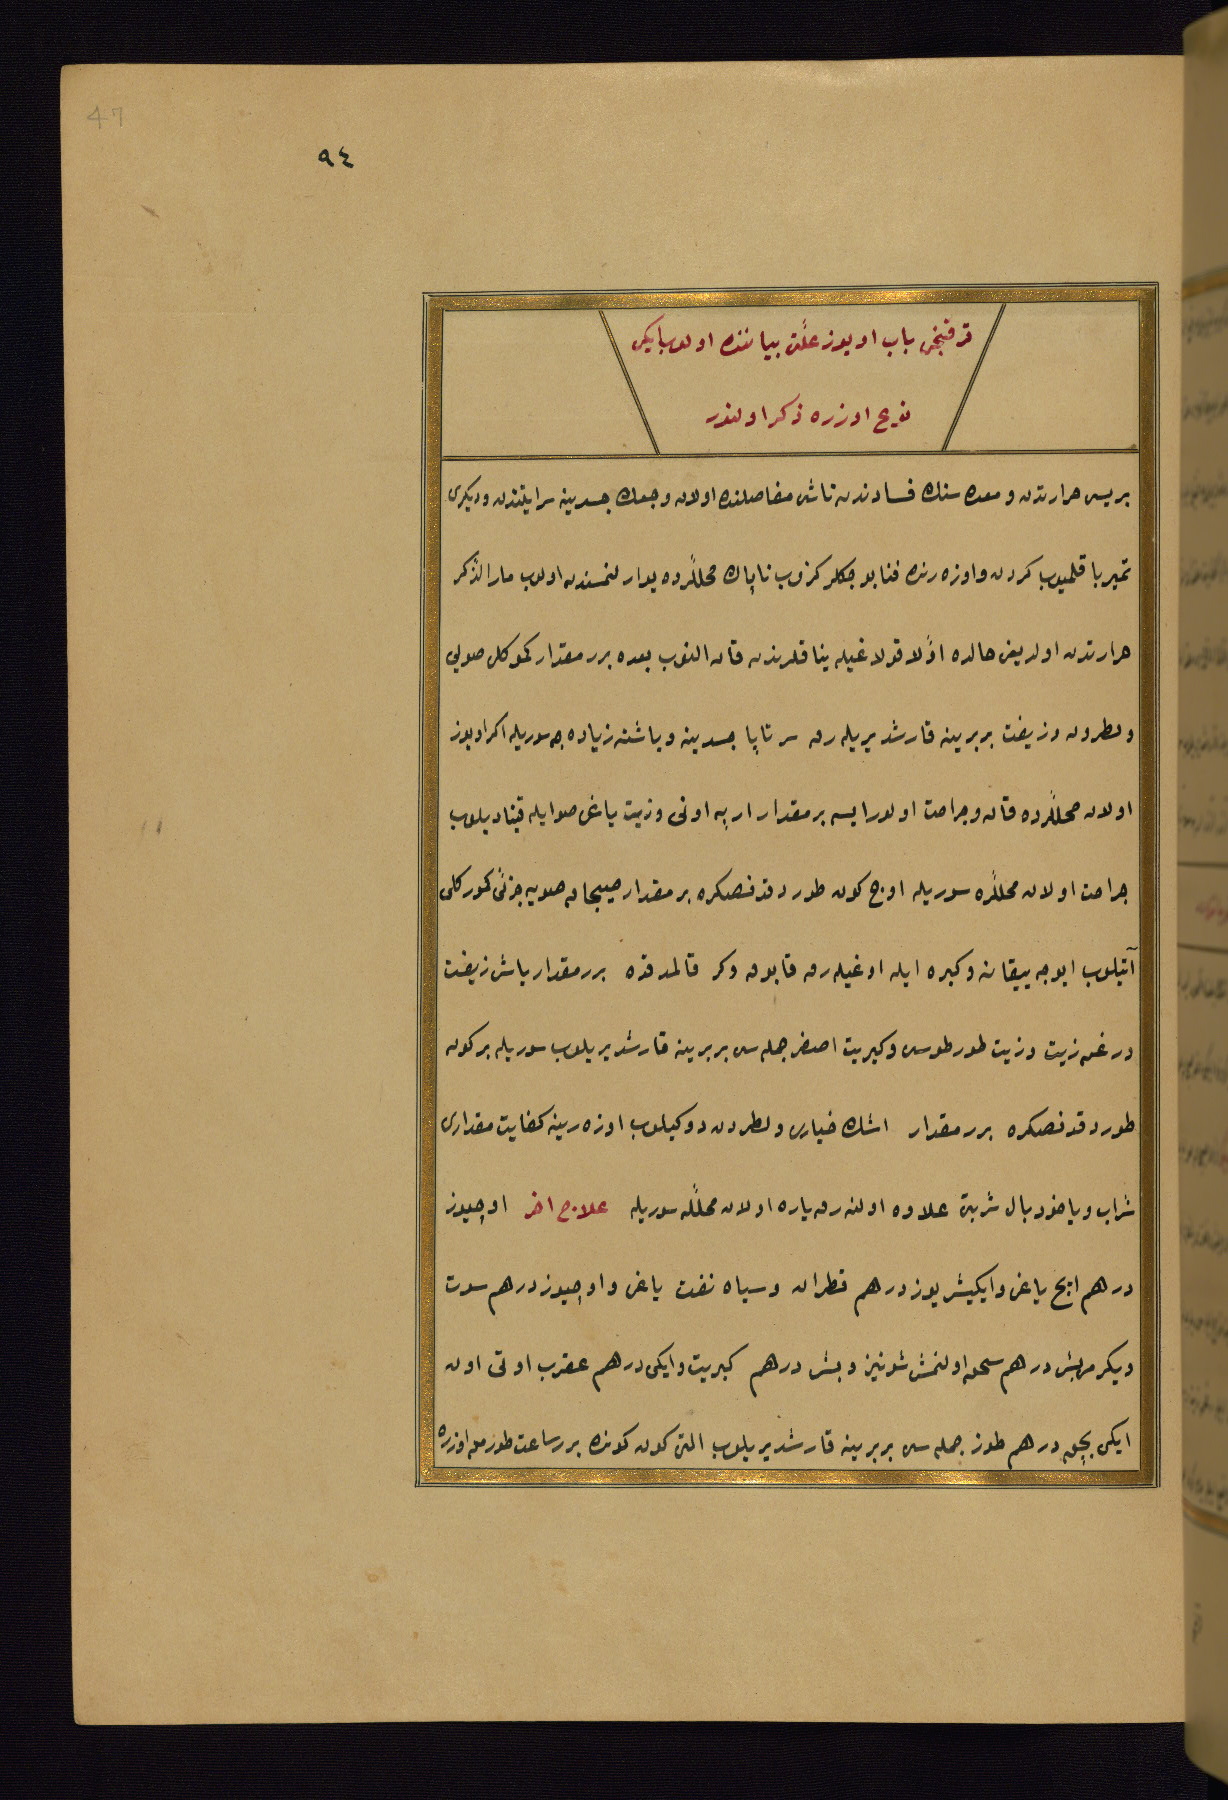 47
٩٤
قرقنجی باب اویوز علتی بیاننده اولوب ایکی
نوع اوزره ذکر اولنور
بریسی حرارتدن و معده سنك فسادندن ناشی مفاصلنده اولان وجعك جسدینه سرایتندن و دیکری
تمیز باقلمیوب کردن و اوزه رنده فنا بوجکلر کزوب ناپاك محللرده یوارلنمسندن اولوب مار الذکر
حرارتدن اولدیغی حالده اولا قولاغیله بناقلرندن قان النوب بعده برر مقدار کموکل صویی
و لطرون و زیفت بربرینه قارشدیریله رق سرتاپا جسدینه و باشنه زیاده جه سوریله اکر اویوز
اولان محللرده قان و جراحت اولور ایسه بر مقدار اربه اونی و زیت یاغی صو ایله قینادیلوب
جراحت اولان محللره سوریله اوچ کون طوردقدنصکره بر مقدار صیجاق صویه جزئی کمور کلی
آتیلوب ایوجه ییقانه و کبره ایله اوغیله رق قابوق و کر قالمدقده برر مقدار یاش زیفت
و روغن زیت و زیت طورطوسی و کبریت اصفر جمله سی بربرینه قارشدیریلوب سوریله بر کون
طوردقدنصکره برر مقدار اشك خیاری و لطرون دوکیلوب اوزه رینه کفایت مقداری
شراب و یاخود بال شربتی علاوه اولنه رق یاره اولان محلله سوریله علاج اخر اوچیوز
درهم ایچ یاغی و ایکیشر یوز درهم قطران و سیاه نفت یاغی و اوچیوز درهم سوت
و یکرمی بش درهم سحق اولنمش شونیز و بش درهم کبریت و ایکی درهم عقرب اوتی اون
ایکی بچق درهم طوز جمله سی بربرینه قارشدیریلوب التی کون کونده برر ساعت طورمق اوزره